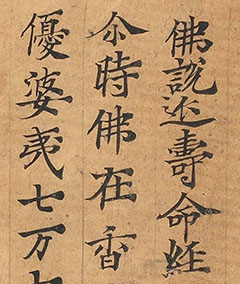 佛說延壽命經
尒時佛在香
優婆夷七万